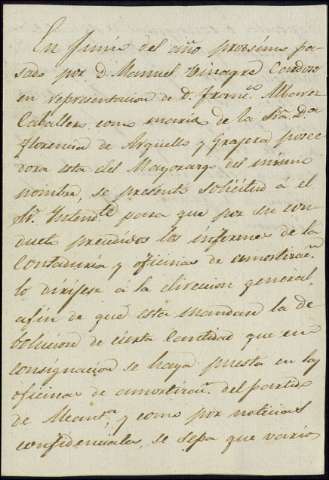 En Junio del año procsimo pa
sado por D. Manuel Vinagre Cordoso
en representacion de D. Franco. Alvarez
Caballero como marido de la Sra. Da.
Florencia de Arguello y Grajera posee
dora esta del Mayorazgo del mismo
nombre, se presentó solicitud á el
Sr. Intendte. para que por su con
ducto precedidos los informes de la
Contaduria y oficinas de amortizacn.
lo dirijese á la direccion general,
afin de que esta mandase la de
bolucion de cierta Cantidad que en
consignacion se haya puesta en las
oficinas de amortizacn. del partido
de Alcanta. y como por noticias
confidenciales, se sepa que varios